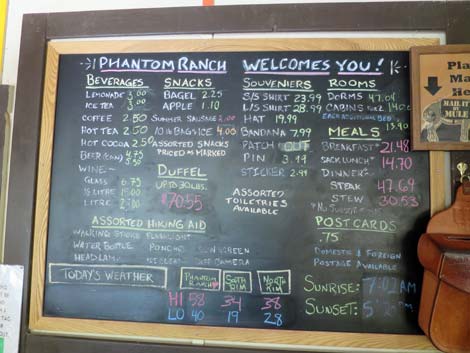 PHANTOM RANCH WELCOMES YOU!
BEVERAGES
LEMONADE 3.00
ICE TEA
COFFEE 2.50
HOT TEA 2.50
HOT COCOA 2.50
BEER (CAN)
WINE~
GLASS 6.75
½ LITRE
LITRE
SNACKS
BAGEL 2.25
APPLE 1.10
SUMMER SAUSAGE
10 lb BAG ICE 4.00
ASSORTED SNACKS
PRICED AS MARKED
DUFFEL
UP TO 30 LBS.
$70.55
SOUVENIERS
S/S SHIRT 23.99
L/S SHIRT 28.99
HAT 19.99
BANDANA 7.99
PATCH OUT
PIN 3.99
STICKER 2.99
ASSORTED
TOILETRIES
AVAILABLE
ROOMS
DORMS 47.04
CABINS
EACH ADDITIONAL BED
MEALS
BREAKFAST 21.48
SACK LUNCH 14.70
DINNER~
STEAK 47.69
STEW 30.53
POSTCARDS
.75
DOMESTIC & FOREIGN
POSTAGE AVAILABLE
ASSORTED HIKING AID
WALKING STICKS FLASHLIGHT
WATER BOTTLE PONCHO SUN SCREEN
HEADLAMP CAMERA
TODAY'S WEATHER
PHANTOM RANCH
SOUTH RIM
NORTH RIM
HI 58 34 38
LO 40 19 28
SUNRISE: 7:02 AM
SUNSET:
MAIL
MULE